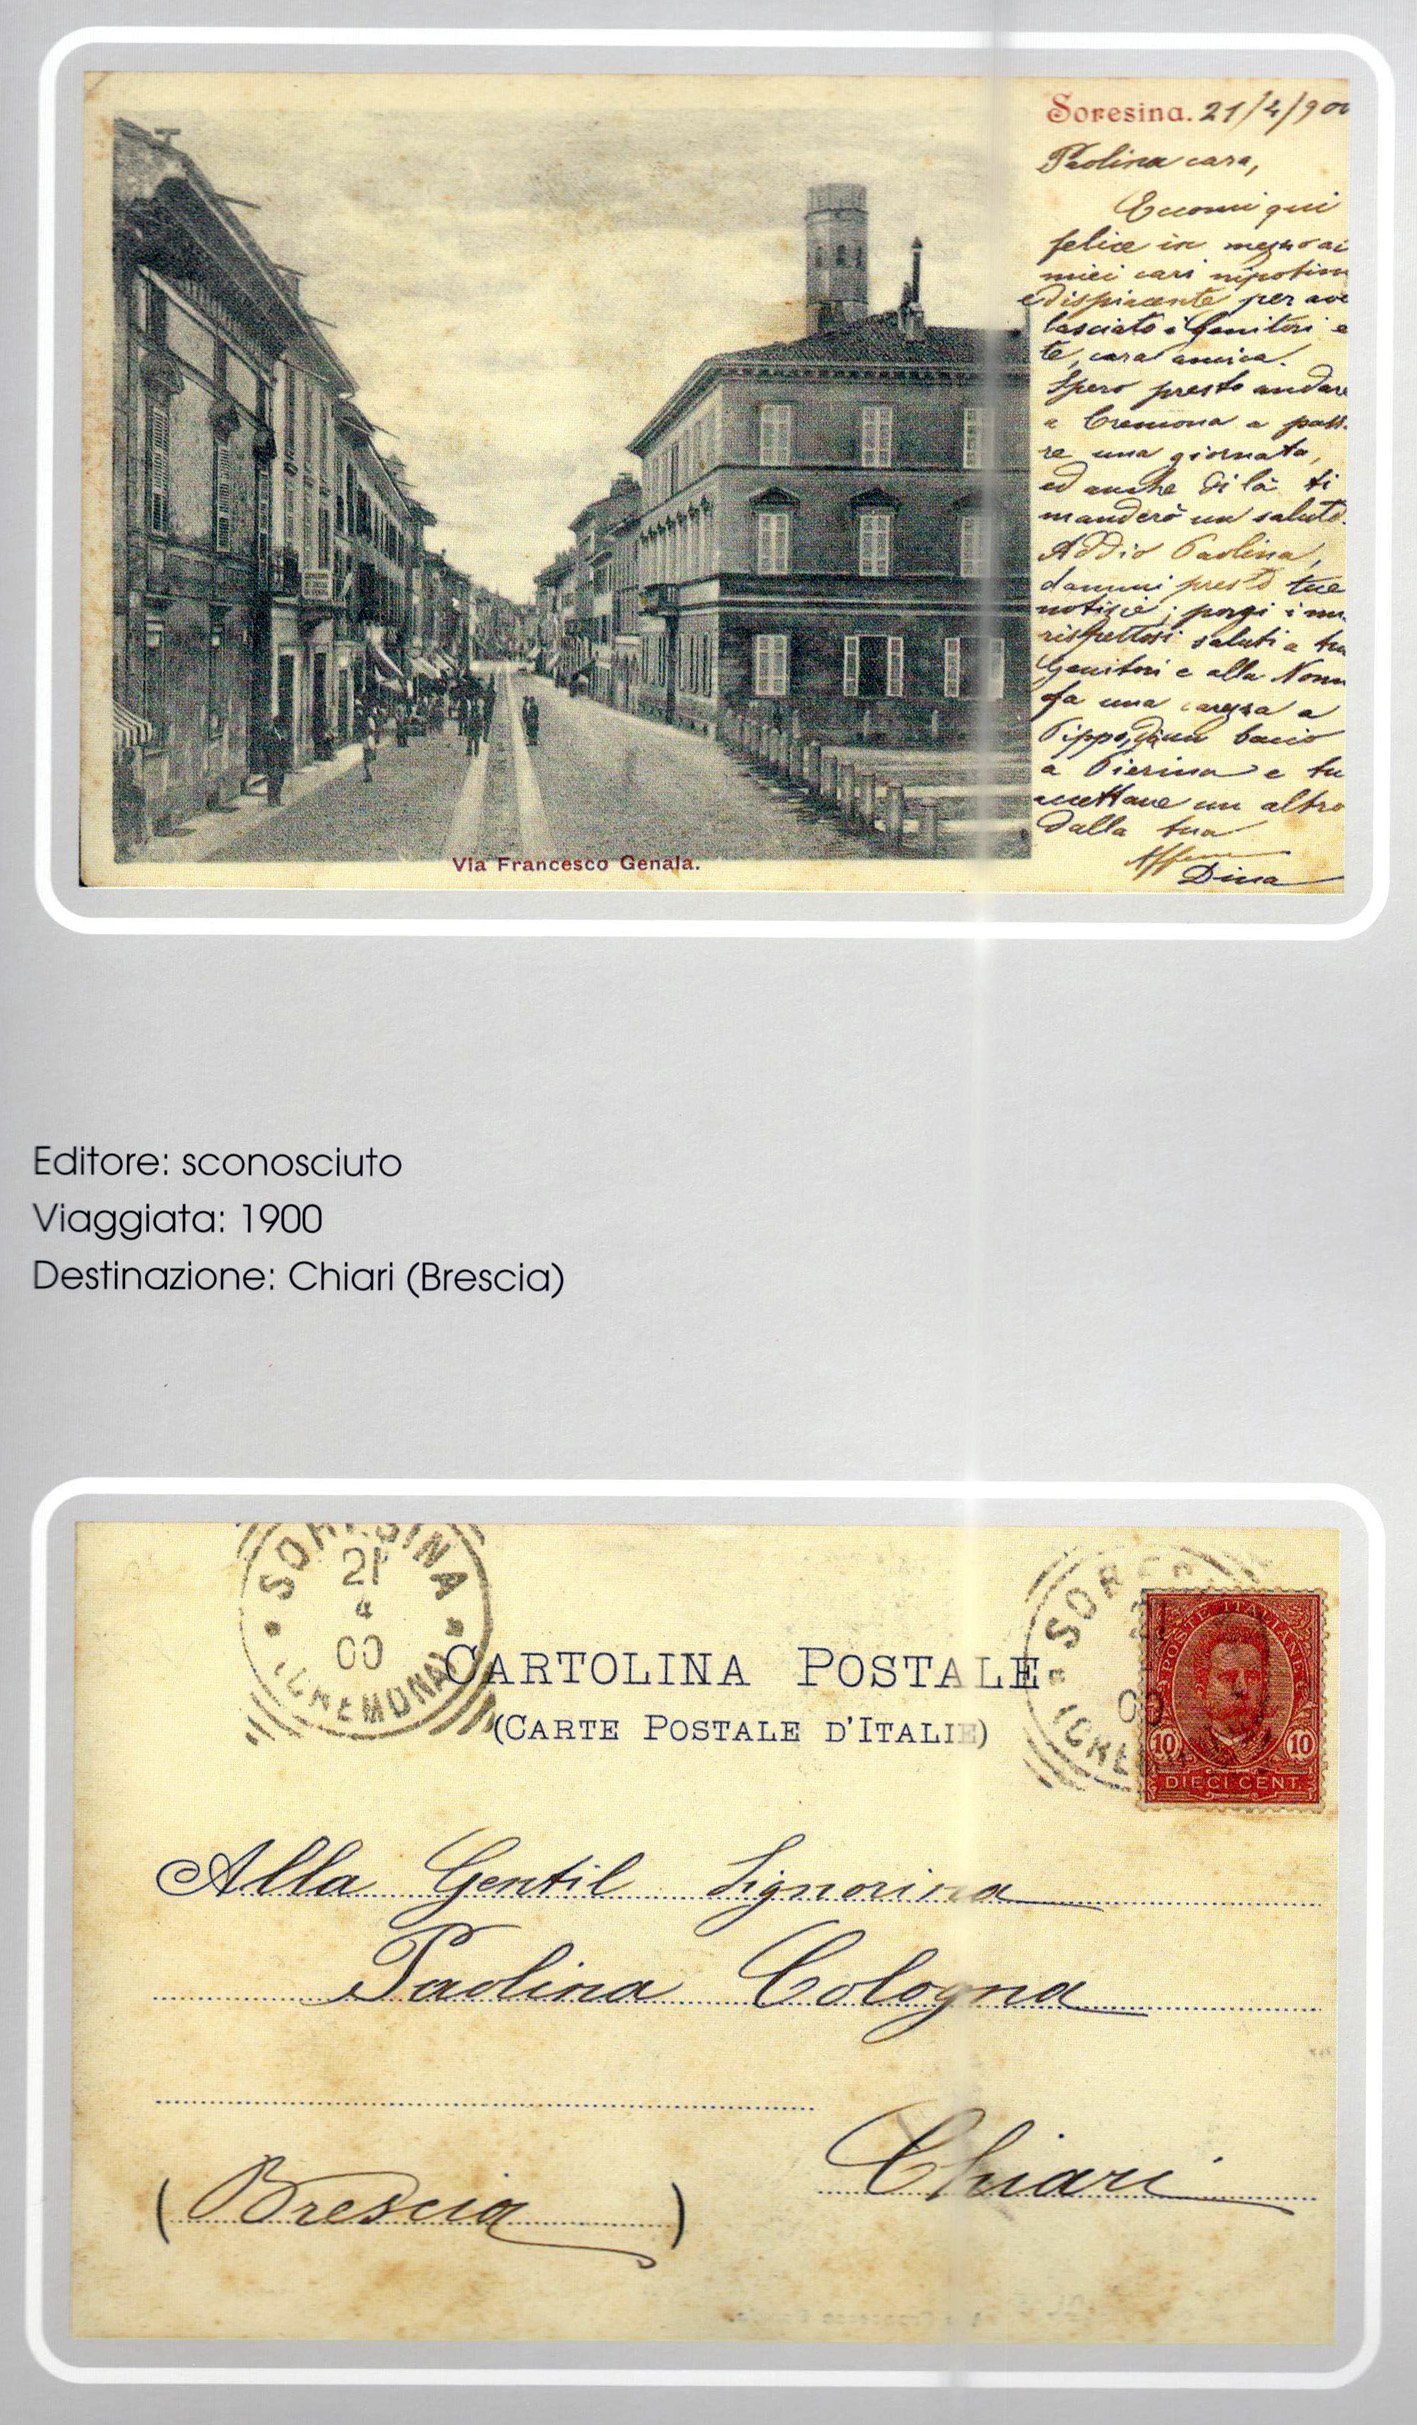 Soresina. 21/4/900
Paolina cara,
Eccomi qui
felice in mezzo ai
miei cari nipotini
e dispiacente per ave
lasciato i Genitori e
te, cara amica.
Spero presto andare
a Cremona a pass
re una giornata,
ed anche di là ti
manderò un saluto.
Addio Paolina,
dammi presto tue
notizie; porgi i mi
rispettosi saluti a tu
Genitori e alla Nonn
fa una carezza a
Pippo, dà un bacio
a Pierina e tu
accettane un altro
dalla tua
Aff
Dina
Via Francesco Genala.
Editore: sconosciuto
Viaggiata: 1900
Destinazione: Chiari (Brescia)
SORESINA
21
4
00
(CREMONA)
SORES
21
00
(CRE
POSTE ITALIANE
10 10
DIECI CENT.
CARTOLINA POSTALE
(CARTE POSTALE D'ITALIE)
Alla Gentil Signorina
Paolina Cologna
Chiari
(Brescia)